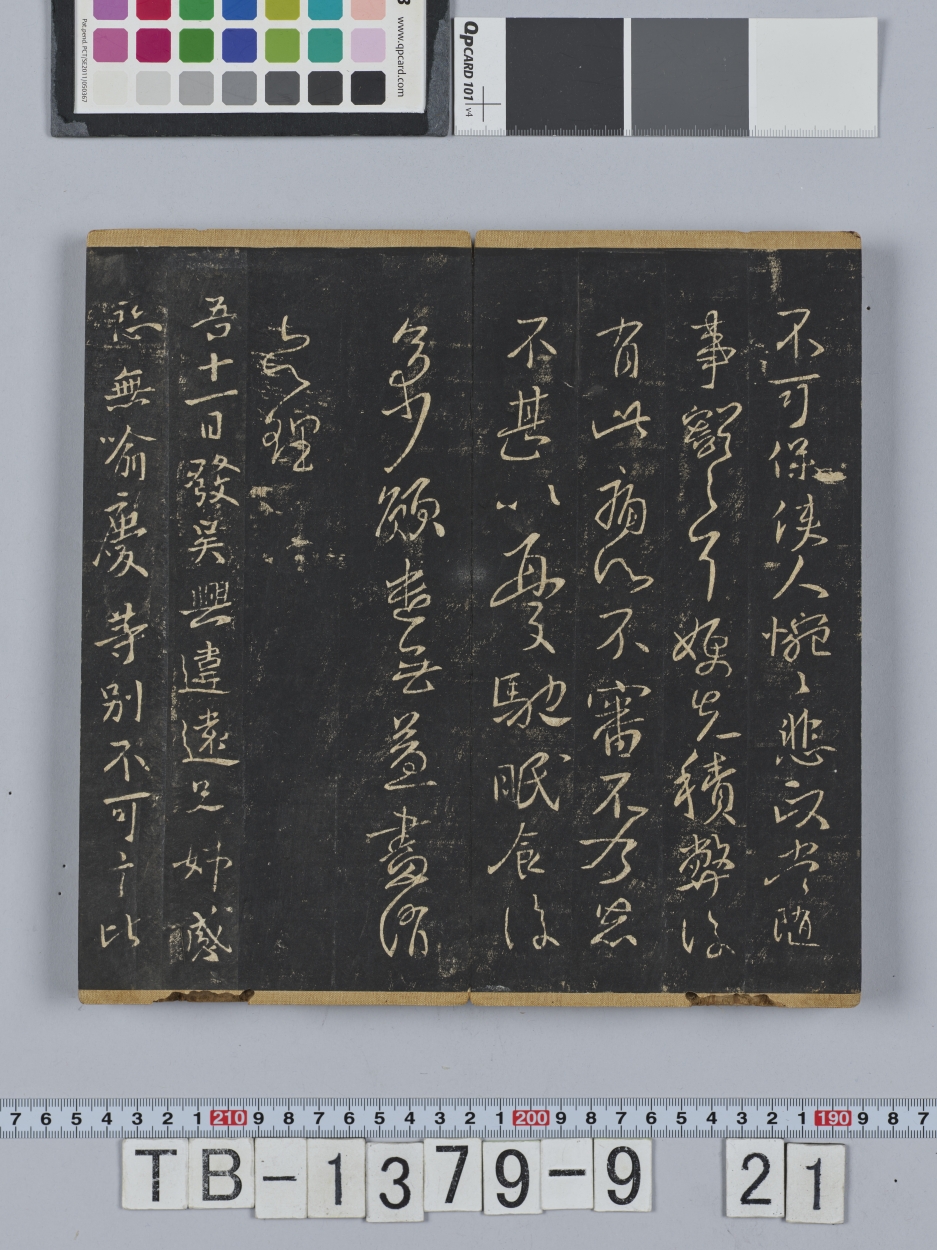 www.qpcard.com
Pat.pend. PCT/SE2011/050367
QPCARD 101 v4
不可保使人惋〻悲政當隨
事豁之耳嫂先積弊復
有此痛心不審不乃惡
不甚以再憂馳眠食復
多少願遣無益盡消
理
吾十一日發吳興違遠兄姊感
戀無喻慶等別不可言比
7 6 5 4 3 2 1 210 9 8 7 6 5 4 3 2 1 200 9 8 7 6 5 4 3 2 1 190 9 8 7
TB-1379-9 21